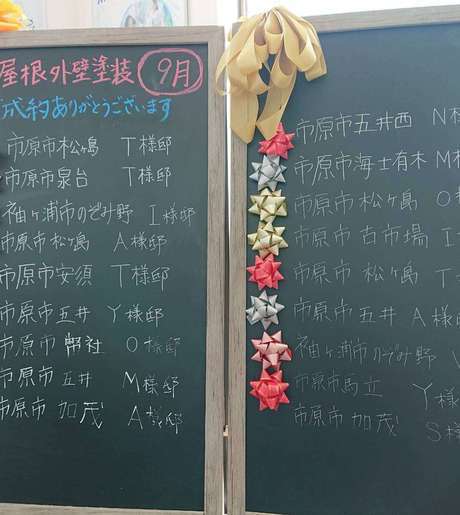 屋根外壁塗装 9月
成約ありがとうございます
市原市松ヶ島 T様邸
市原市泉台 T様邸
袖ヶ浦市のぞみ野 I様邸
市原市松ヶ島 A様邸
市原市安須 T様邸
市原市五井 Y様邸
市原市 O様邸
市原市五井 M様邸
市原市加茂 A様邸
市原市五井西 N様
市原市海士有木 M
市原市松ヶ島 O
市原市古市場 I
市原市松ヶ島 T
市原市五井 A様
袖ヶ浦市のぞみ野
市原市馬立 Y様
市原市加茂 S様